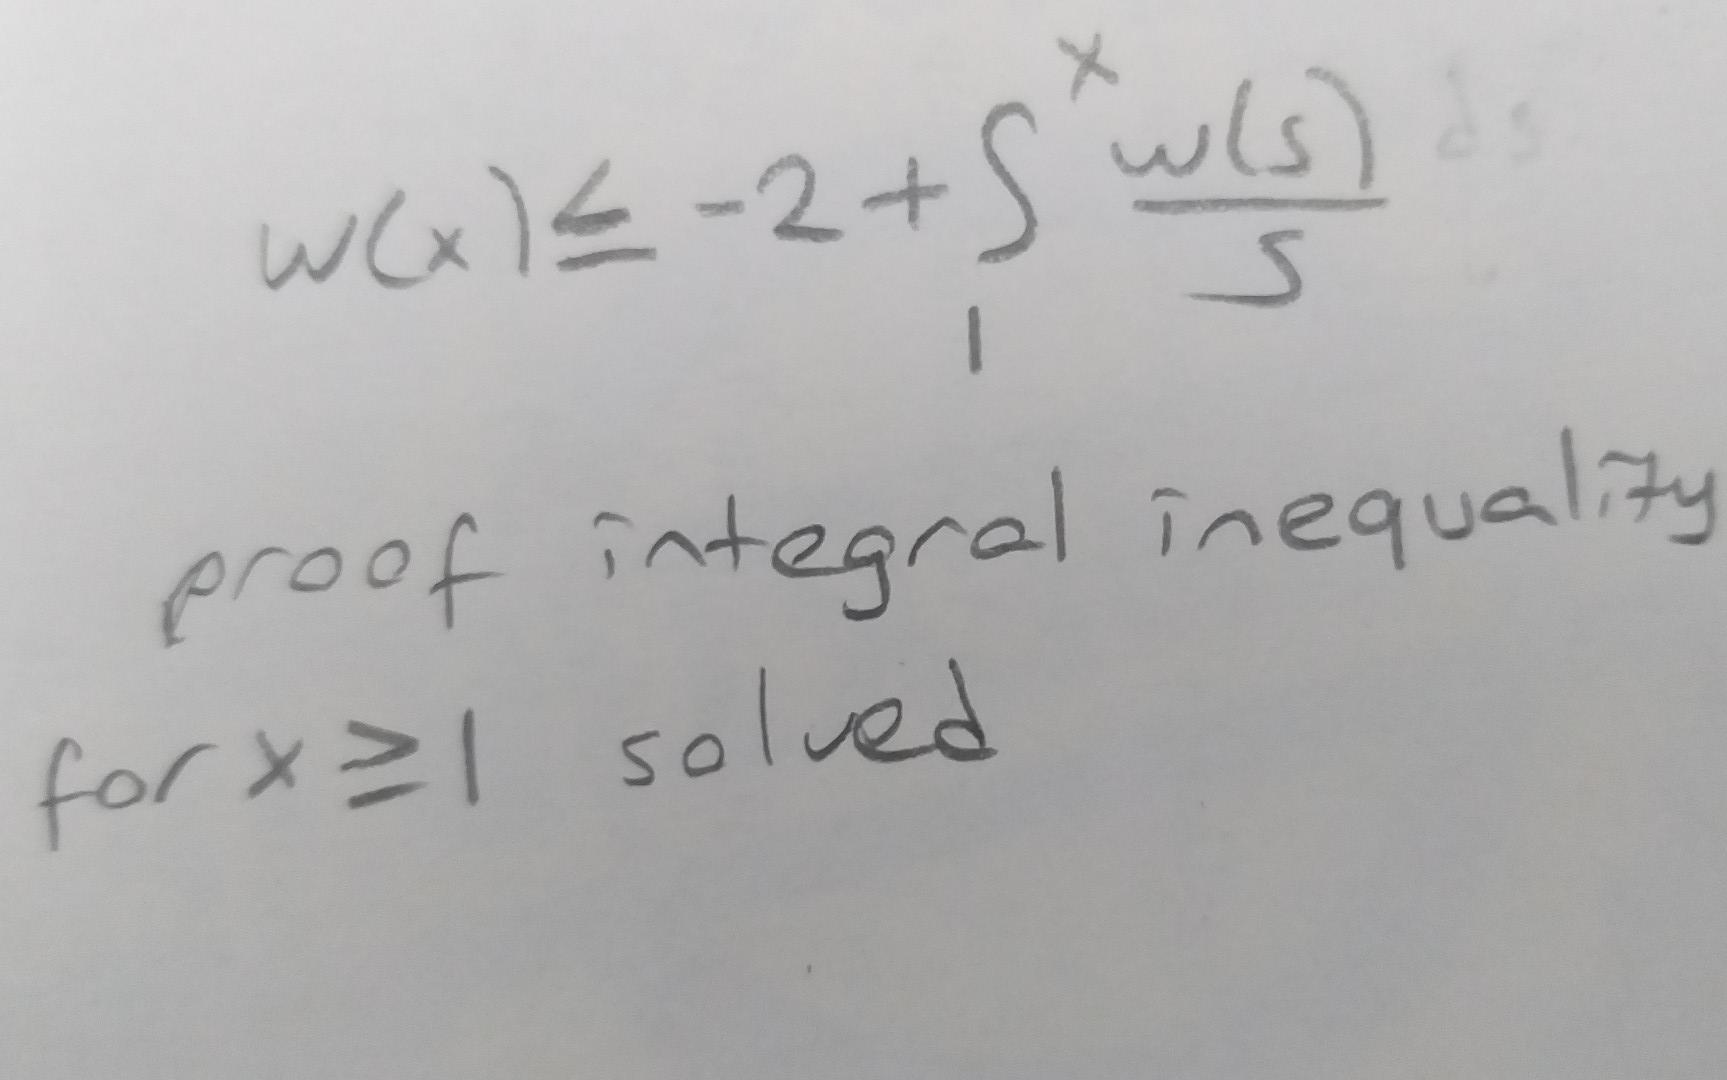 w(x) ≤ -2 + ∫₁ˣ w(s)/s ds
proof integral inequality
for x ≥ 1 solved